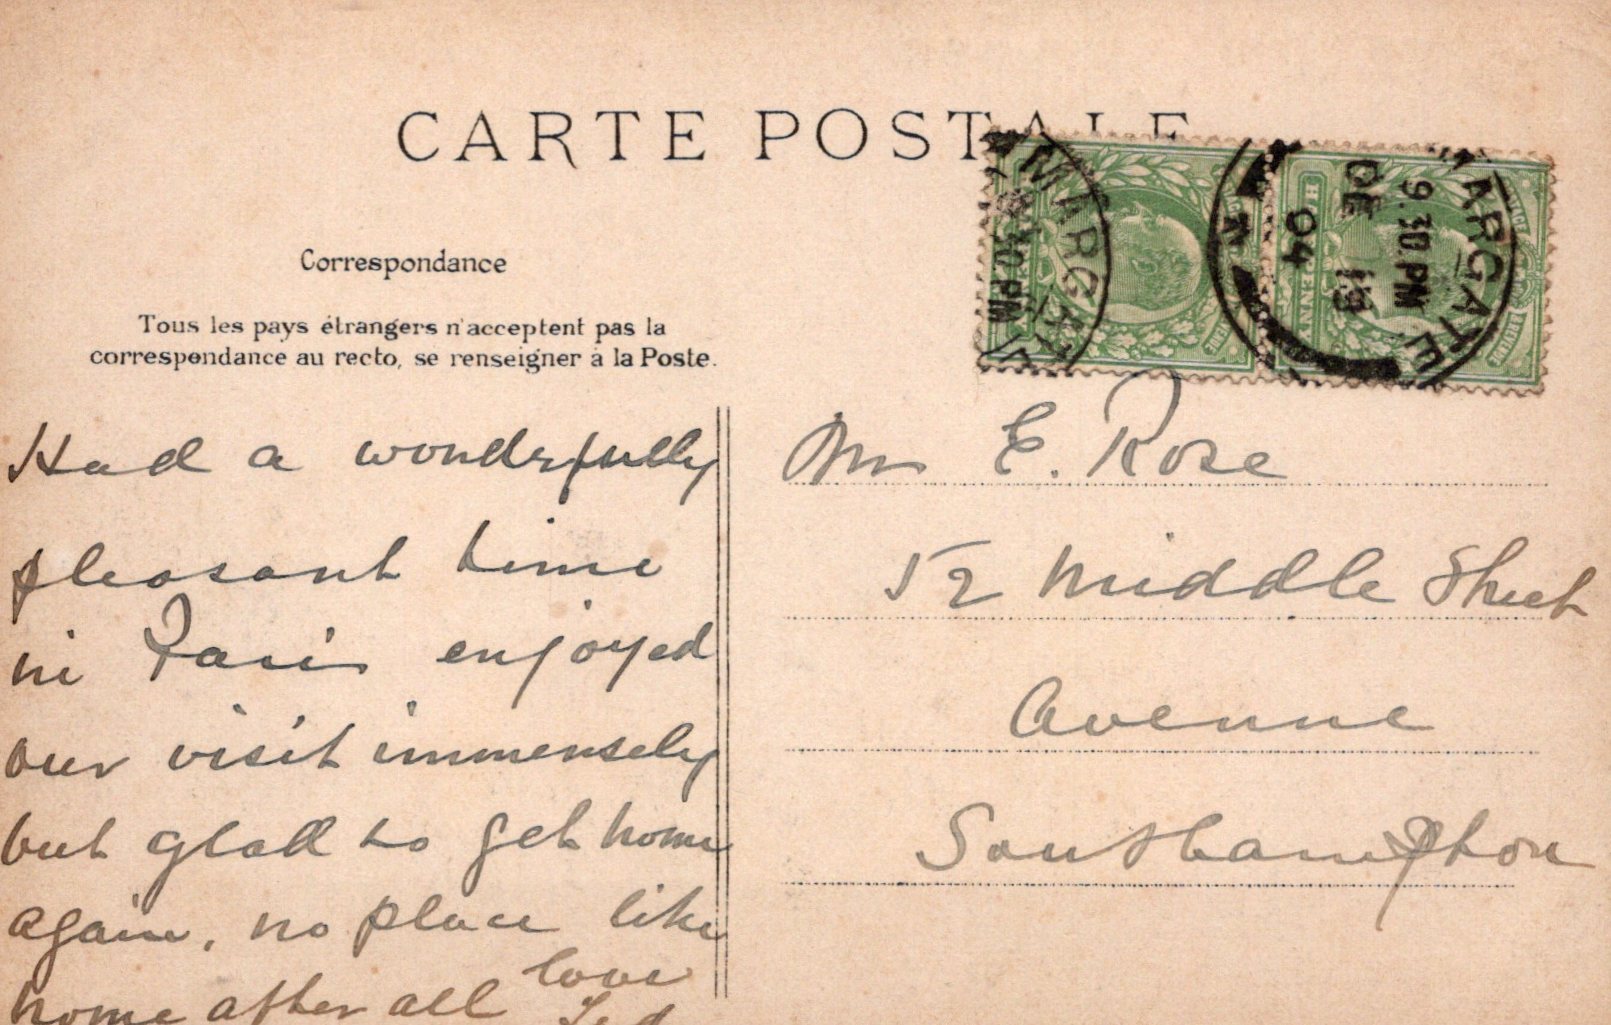 CARTE POSTALE
Correspondance
Tous les pays étrangers n'acceptent pas la
correspondance au recto, se renseigner à la Poste.
MARGATE
9.30 PM
DE 19
04
MARGATE
30 PM
Had a wonderfully
pleasant time
in Paris enjoyed
our visit immensely
but glad to get home
again, no place like
home after all love
Ted
E. Rose
52 Middle Street
Avenue
Southampton